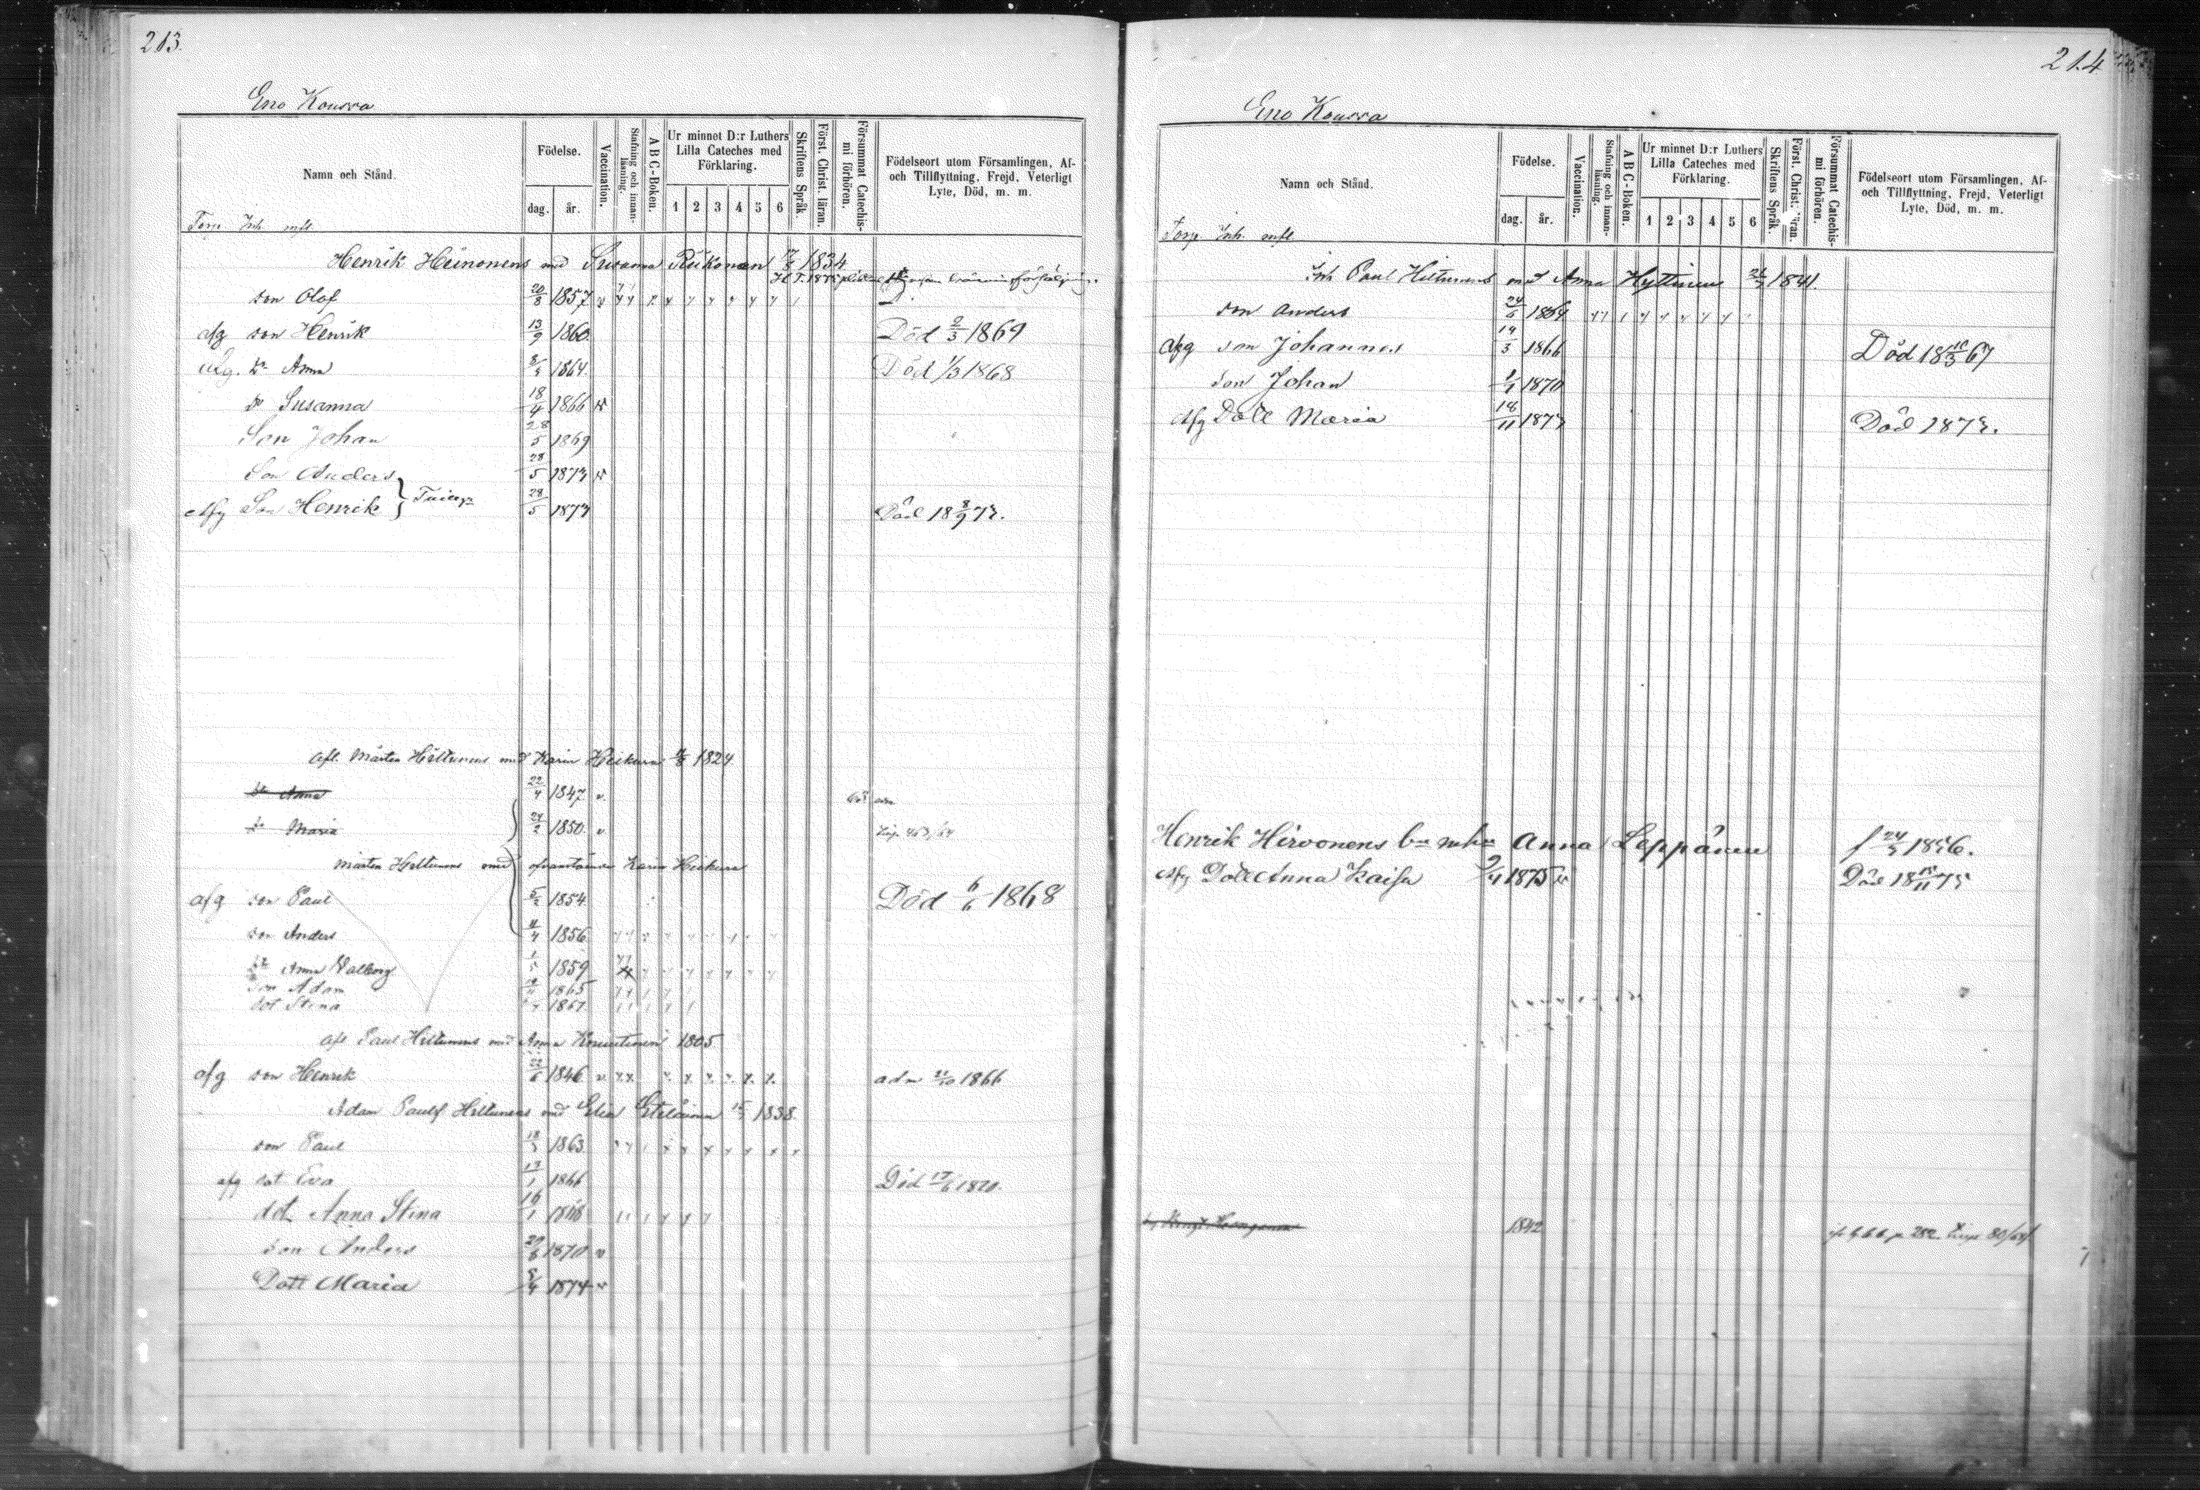 213.
Eno Kousva
Namn och Stånd.
Födelse.
dag. år.
Vaccination.
Stafning och innan-läsning.
A B C-Boken.
Ur minnet D:r Luthers Lilla Cateches med Förklaring.
1 2 3 4 5 6
Skriftens Språk
Först. Christ. läran.
Försummat Catechis-mi förhören.
Födelseort utom Församlingen, Af- och Tillflyttning, Frejd, Veterligt Lyte, Död, m. m.
Torp. Inh. mfl.
Henrik Heinonens med Susanna Riikonen 1834
son Olof 20/3 1857
afg son Henrik 13/9 1860. Död 2/3 1869
afg. dr Anna 1864. Död 1/3 1868
dr Susanna 18/4 1866
Son Johan 28/5 1869
Son Anders 28/5 1873
afg Son Henrik 28/5 1873 Död 18 8/9 73.
afl. Mårten Hiltunens med Karin Heikura 1824
dr Anna 22/4 1847
dr Maria 24/2 1850.
Mårten Hiltunens med Karin Heikura
afg son Paul 5/2 1854. Död 6/6 1868
son Anders 11/4 1856
dr Anna Walborg 1/5 1859
son Adam 1865
dot Stina 1867
afl Paul Hiltunens med Anna 1805
afg son Henrik 22/6 1846 adm 21/10 1866
Adam Paulsf Hiltunens med 1838.
son Paul 18/5 1863
afg dot Eva 17/1 1866 Död 17/6 1870.
dot Anna Stina 16/1 1868
son Anders 29/8 1870
Dott Maria 8/4 1874
214
Eno Kousva
Namn och Stånd.
Födelse.
dag. år.
Vaccination.
Stafning och innan-läsning.
A B C-Boken.
Ur minnet D:r Luthers Lilla Cateches med Förklaring.
1 2 3 4 5 6
Skriftens Språk
Först. Christ. läran.
Försummat Catechis-mi förhören.
Födelseort utom Församlingen, Af- och Tillflyttning, Frejd, Veterligt Lyte, Död, m. m.
Torp. Inh. mfl.
Inh Paul Hiltunens med Anna Hyttinen 1841.
son Anders 24/6 1864
afg son Johannes 14/3 1866 Död 18 10/3 67
son Johan 1/1 1870
afg Dott Maria 18/11 1873 Död 1873.
Henrik Hirvonens Anna Leppänen f 24/5 1856.
afg Dott Anna Kaisa 9/4 1875 Död 18 15/11 75
1842